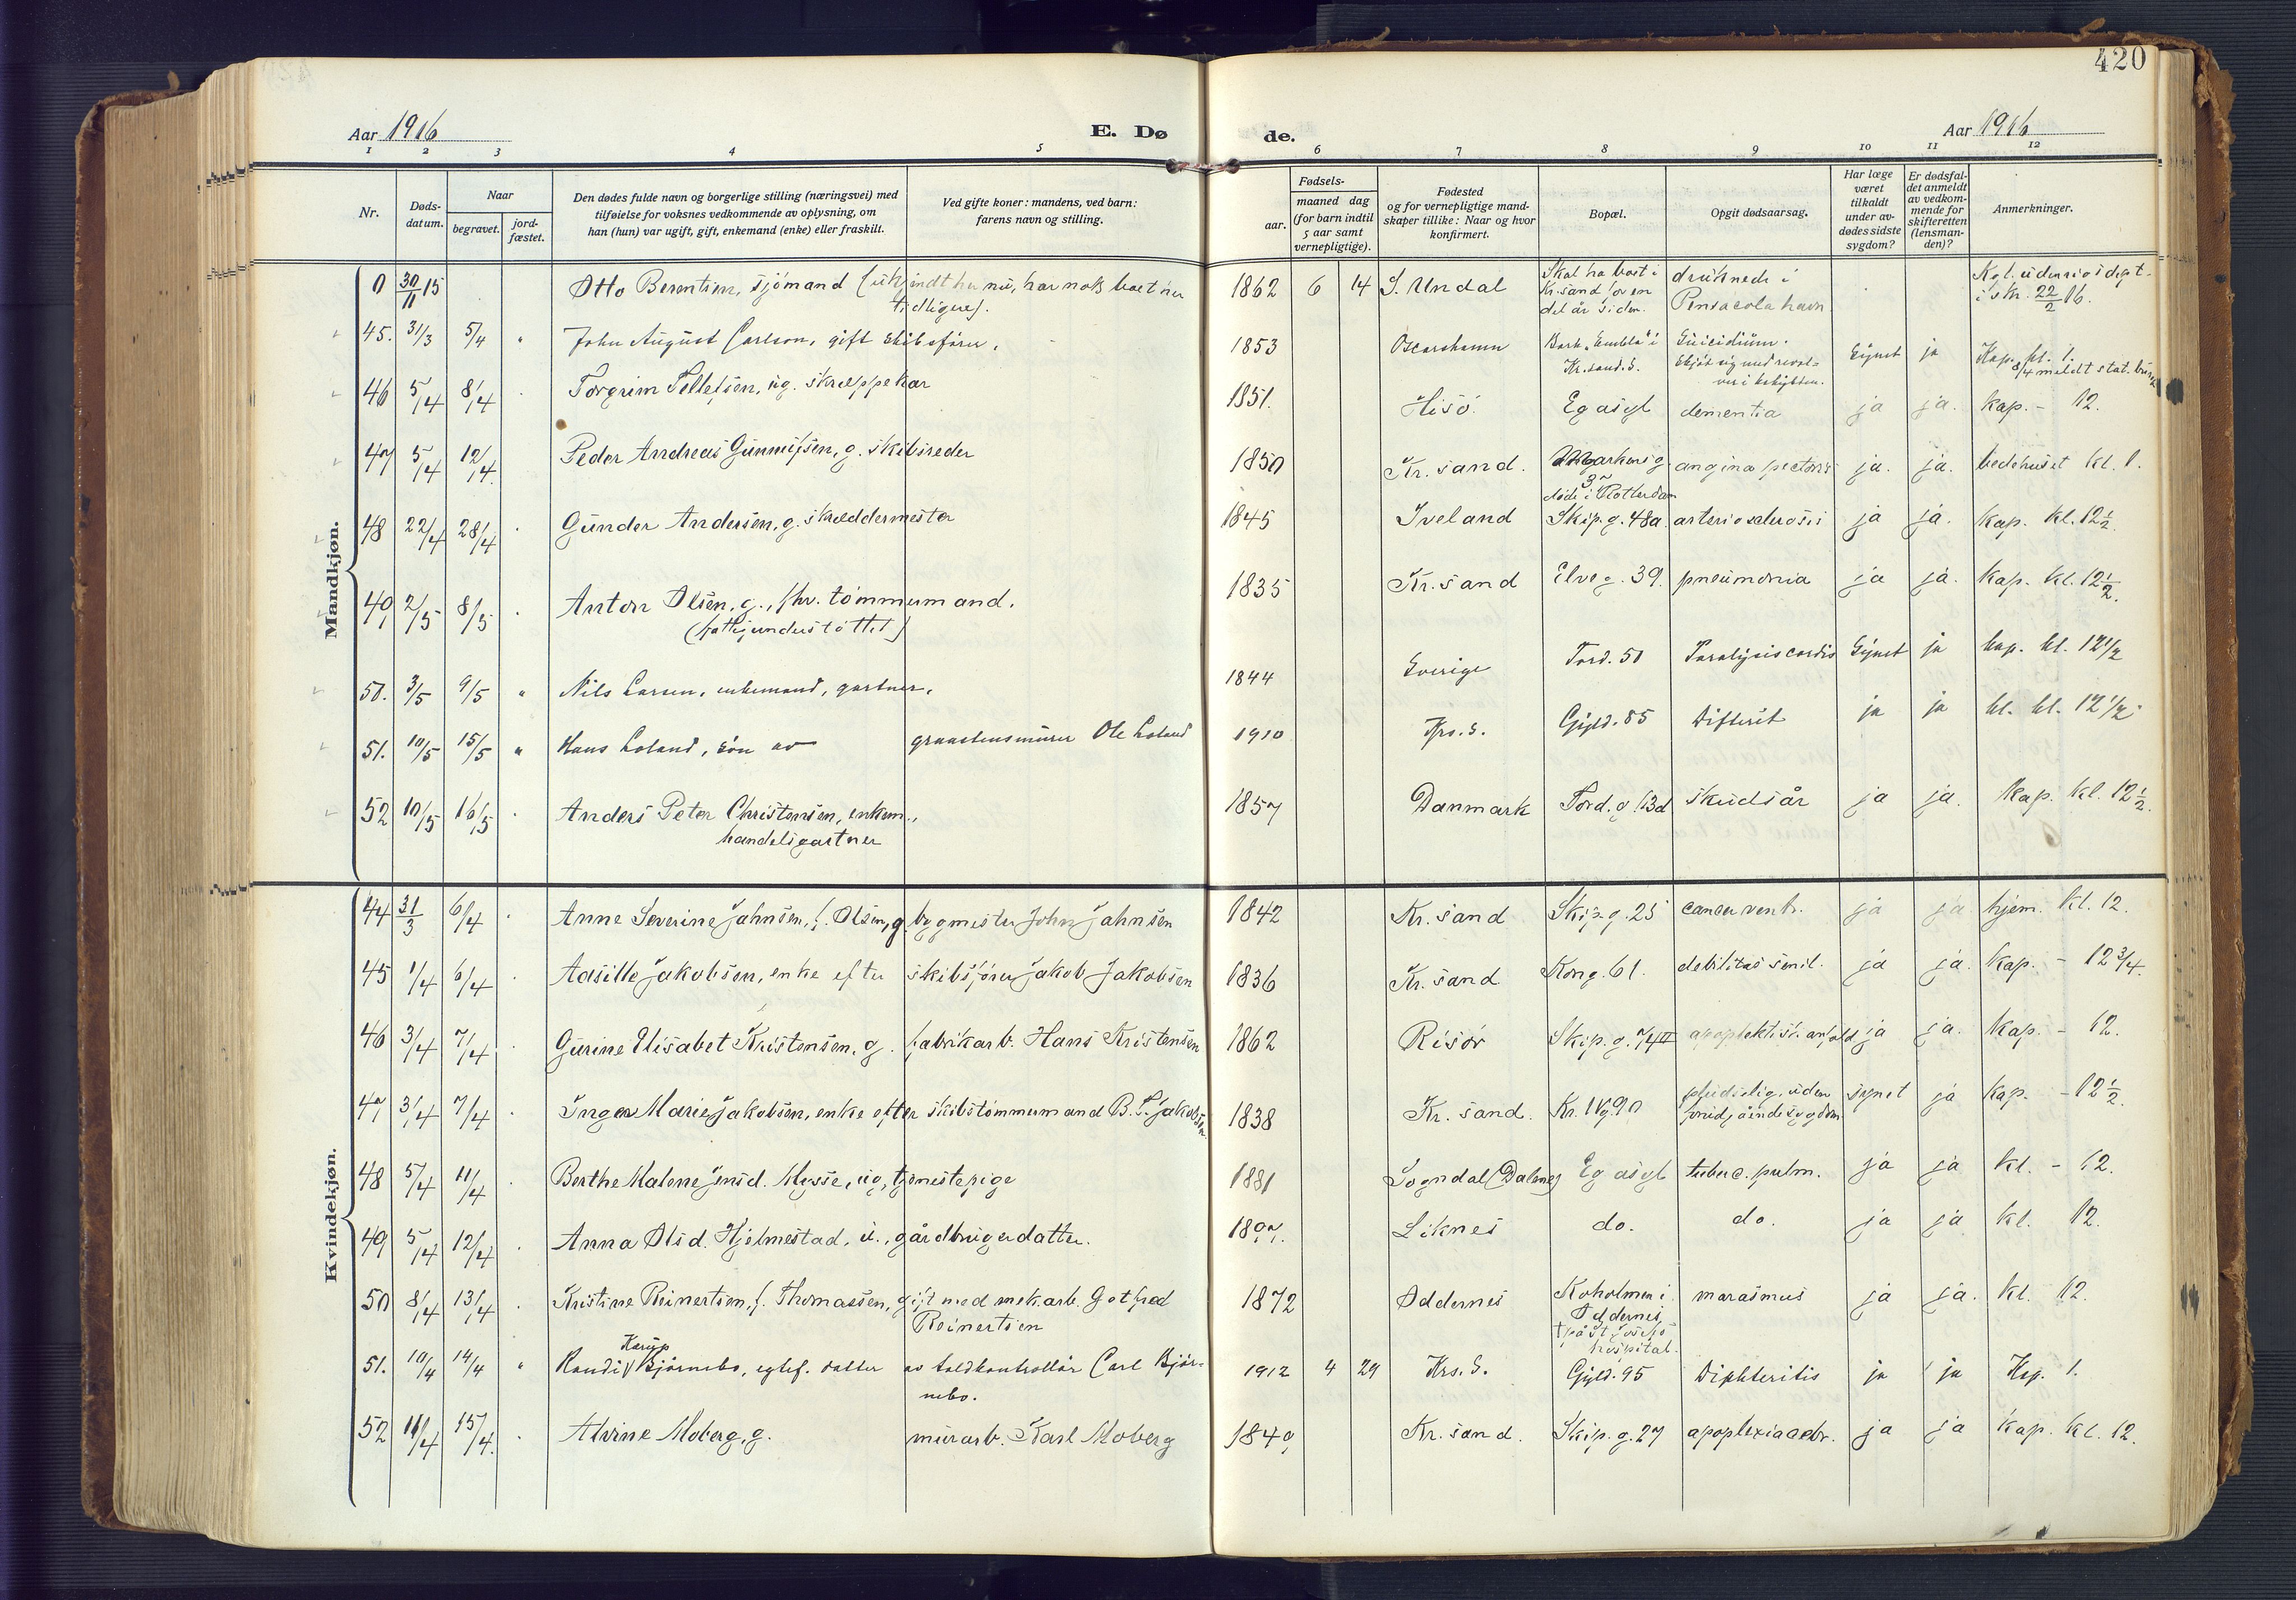 420
Aar 1916 E. Dø de. Aar 1916
1 2 3 4 5 6 7 8 9 10 11 12
Nr. Døds-datum. Naar begravet. jord-fæstet. Den dødes fulde navn og borgerlige stilling (næringsvei) med tilføielse for voksnes vedkommende av oplysning, om han (hun) var ugift, gift, enkemand (enke) eller fraskilt. Ved gifte koner: mandens, ved barn: farens navn og stilling. Fødsels- aar. maaned dag (for barn indtil 5 aar samt vernepligtige). Fødested og for vernepligtige mand-skaper tillike: Naar og hvor konfirmert. Bopæl. Opgit dødsaarsag. Har læge været tilkaldt under av-dødes sidste sygdom? Er dødsfal-det anmeldt av vedkom-mende for skifteretten (lensman-den)? Anmerkninger.
Mandkjøn.
0 30/11 15 Otto Berentsen, sjömand (ukjendt her nu, har nok boet her tidligere). 1862 6 14 S. Undal Skal ha boet i Kr.sand for en del år siden. druknede i Pensacola havn Kgl. udenrigsdept. skr. 22/2 16.
45. 31/3 5/4 " John August Carlson, gift skibsfører. 1853 Oscarshamn Bark "Embla" i Kr.sand. S. Suicidium. Skjöt sig med revol-ver i kahytten. Synet ja Kap. kl. 1. 8/4 meldt stat. byrå
46 5/4 8/4 Torgrim Tellefsen, ug. skræppekar 1851. Hisö. Eg asyl dementia ja ja. Kap. - 12.
47 5/4 12/4. Peder Andreas Gunnufsen, g. skibsreder 1850 Kr.sand. Markensg. 3 döde i Rotterdam angina pectoris ja. ja. bedehuset kl. 1.
48 22/4 28/4 Gunder Andersen, g. skræddermester 1845 Iveland Skip.g. 48a arteriosclerosis ja ja. Kap. kl. 12 1/2.
49 2/5 8/5 Anton Olsen, g., fhv. tömmermand. (fattigunderstöttet) 1835 Kr.sand Elveg. 39. pneumonia ja ja. Kap. kl. 12 1/2.
50. 3/5 9/5 " Nils Larsen, enkemand, gartner. 1844 Sverige Tord. 50 Paralysis cordis Synet ja kap. kl. 12 1/2
51. 10/5 15/5 " Hans Loland, sön av graastensmurer Ole Loland 1910 Krs. S. Gyld. 85 Difterit ja ja kl. kl. 12 1/2.
52 10/5 16/5 Anders Peter Christensen, enkem., handelsgartner 1857 Danmark Tord.g. 13d skudsår ja ja. Kap. kl. 12 1/2.
Kvindekjøn.
44 31/3 6/4 Anne Severine Jahnsen, f. Olsen, g. bygmester John Jahnsen 1842 Kr.sand Skip.g. 25 cancer ventr. ja ja hjem. kl. 12.
45 1/4 6/4 Aasille Jakobsen, enke efter skibsförer Jakob Jakobsen 1836 Kr.sand Kong. 61. debilitas senil. ja ja. Kap. - 12 3/4.
46 3/4 7/4 Gurine Elisabet Kristensen, g. fabrikarb. Hans Kristensen 1862 Risör Skip.g. 74II apoplektisk anfald ja ja. Kap. - 12.
47 3/4 7/4 Inger Marie Jakobsen, enke efter skibstömmermand B. T. Jakobsen. 1838 Kr.sand. Kr. IVg 90 pludselig, uden forudgående sygdom synet ja Kap. - 12 1/2.
48 5/4 11/4 Berthe Malene Jensd. Mysse, ug, tjenestepige 1881 Sogndal (Dalene) Eg asyl tuberc. pulm. ja ja kl. - 12.
49 5/4 12/4 Anna Olsd. Hjelmestad, u., gårdbrugerdatter. 1897. Liknes do. do. ja ja kl. 12.
50 8/4 13/4 Kristine Reinertsen, f. Thomassen, gift med mek. arb. Gotfred Reinertsen 1872 Oddernes Koholmen i Oddernes, † på St. Josefs hospital. marasmus ja ja. kl. 12.
51. 10/4 14/4 " Randi Karup Björnebo, egtef. datter av toldkontrollör Carl Björ-nebo. 1912 4 29 Krs. S. Gyld. 95 Diphteritis ja ja Kap. 1.
52 11/4 15/4. Alvine Moberg, g. murarb. Karl Moberg 1849 Kr.sand. Skip.g. 27 apoplexia cebr. ja ja Kap. kl. 12.